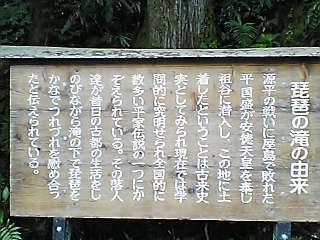 琵琶の滝の由来
源平の戦いに屋島で敗れた
平国盛が安徳天皇を奉じ
祖谷に潜入しこの地に土
着したということは古来史
実としてみられ現在では学
問的に究明せられ全国的に
数多い平家伝説の一つにか
ぞえられている。その落人
達が昔日の古都の生活をし
のびながら滝の下で琵琶を
かなでつれづれを慰め合っ
たと伝えられている。